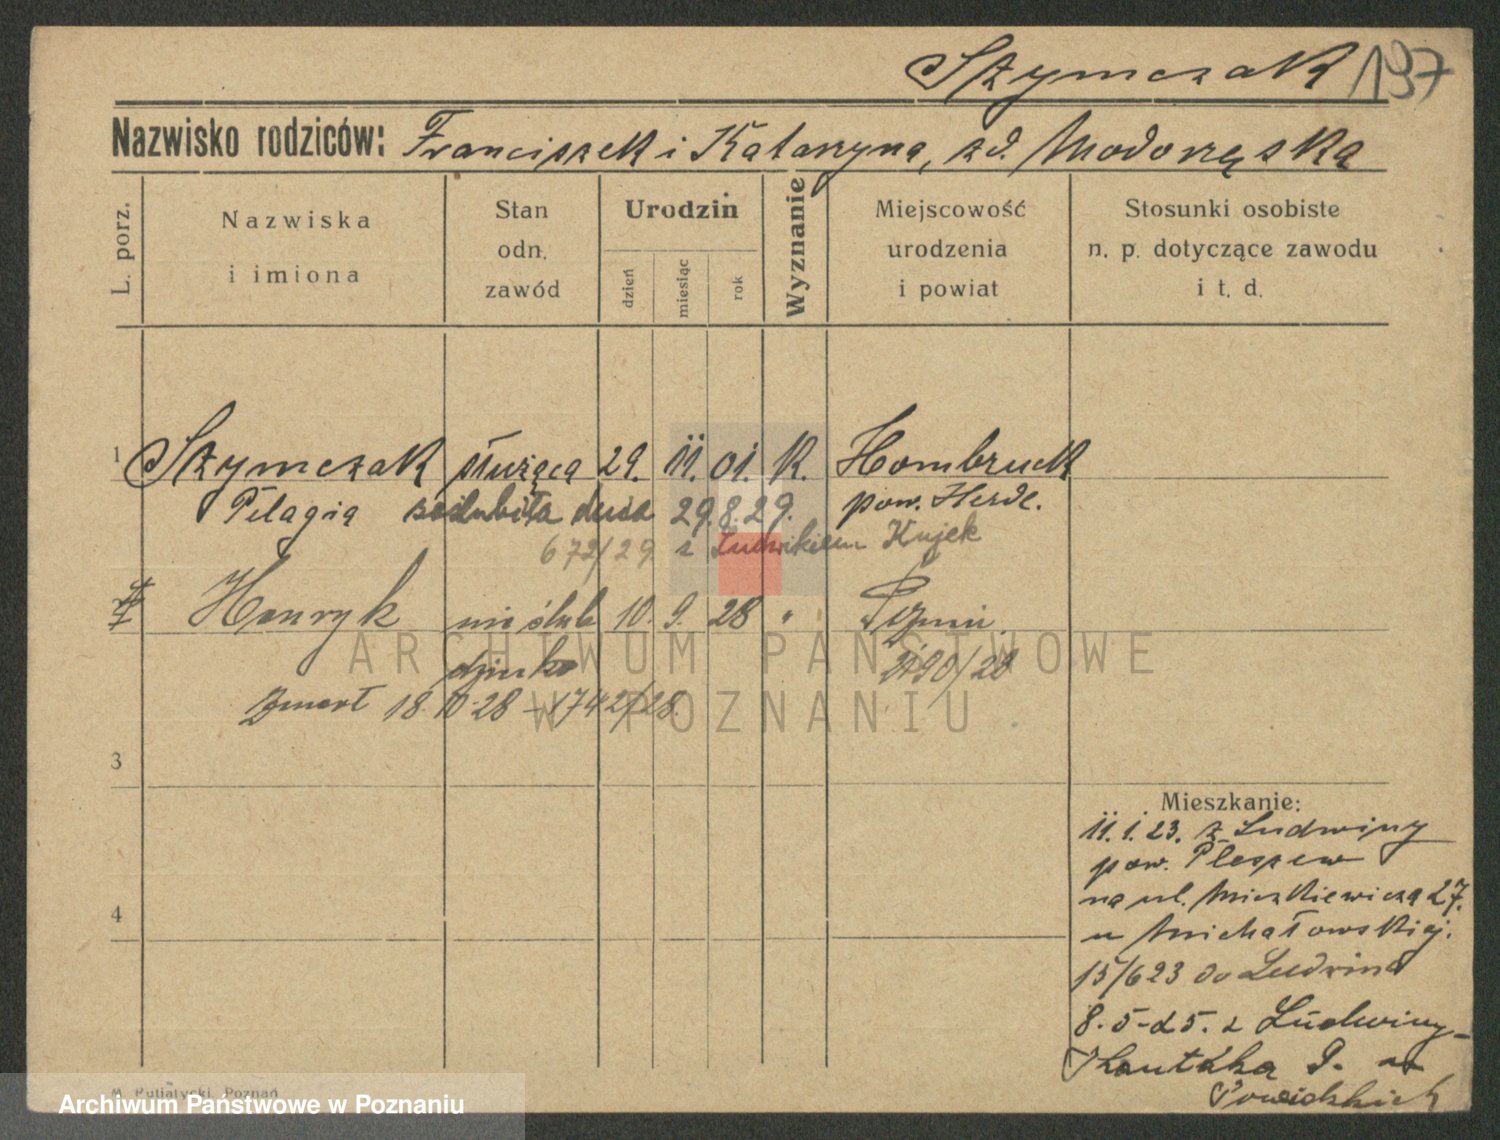 Szymczak 197
Nazwisko rodziców: Franciszek i Katarzyna, zd. Modorzęska
L. porz.
Nazwiska i imiona
Stan odn. zawód
Urodzin
dzień
miesiąc
rok
Wyznanie
Miejscowość urodzenia i powiat
Stosunki osobiste n. p. dotyczące zawodu i t. d.
1 Szymczak służąca 29. 11. 01. K. Hombruck
Pelagia zaślubiła dnia 29.8.29. pow. Herde.
672/29 z Ludwikiem Kujek
2 Henryk nieślub 10. 9. 28 "
dziecko 2190/28
Zmarł 18 10 28 - 1742/28.
3
4
Mieszkanie:
11.1.23. z Ludwiny
pow. Pleszew
na ul. Mickiewicza 27.
u Michałowskiej.
15/6 23 do Ludwina
8.5-25. z Ludwiny-
Kantaka 9. u
M. Putiatycki, Poznań
ARCHIWUM PAŃSTWOWE
W POZNANIU
Archiwum Państwowe w Poznaniu